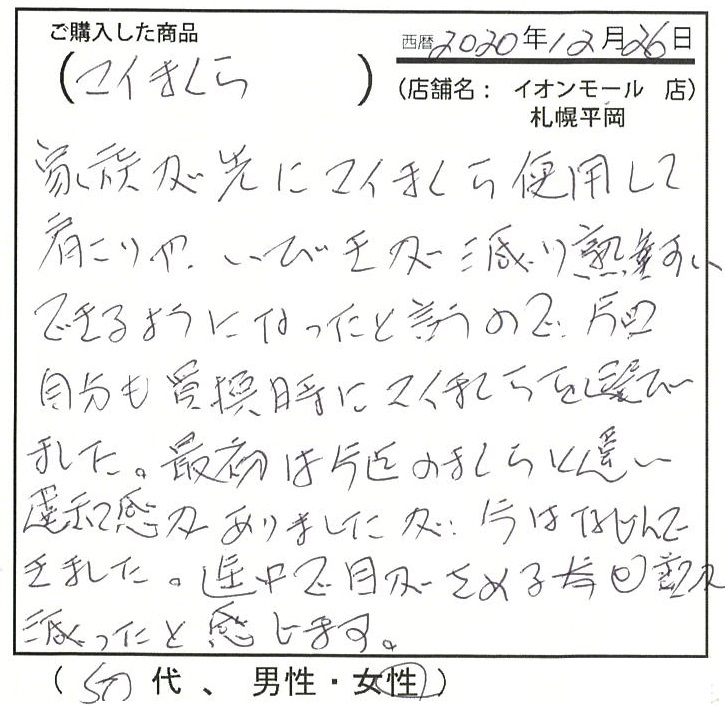 ご購入した商品
西暦2020年12月26日
(マイまくら)
(店舗名： イオンモール 店)
札幌平岡
家族が先にマイまくら使用して
肩こりや、いびきが減り熟すい
できるようになったと言うので、今回
自分も買換時にマイまくらを選び
ました。最初は今迄のまくらと違い
違和感がありましたが、今はなじんで
きました。途中で目がさめる回数
減ったと感じます。
(50代、男性・女性)